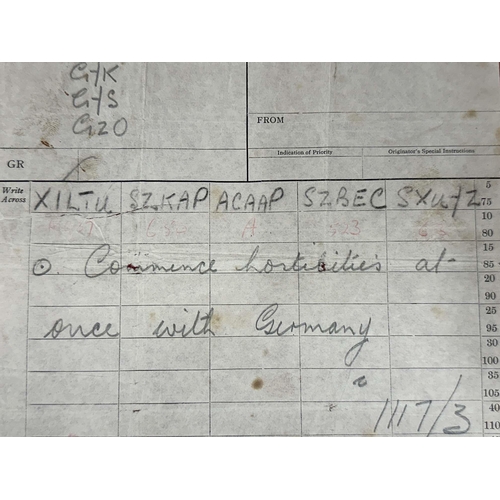 G/K
G/S
G20
FROM
Indication of Priority Originator's Special Instructions
GR
Write Across XILTU SZKAP ACAAP SZBEC 5
75
10
80
15
⊙. Commence hostibities at 85
20
90
25
once with Germany 95
30
100
35
105
1117/3 40
110